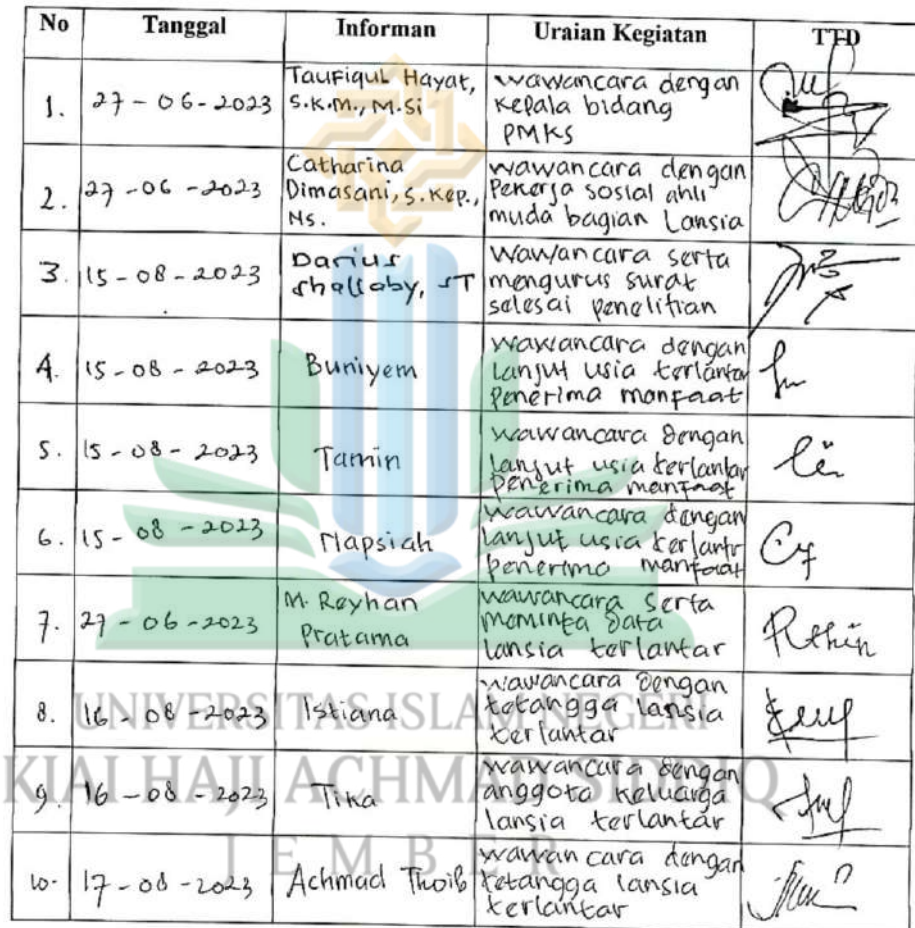 No Tanggal Informan Uraian Kegiatan TTD
1. 27-06-2023 Taufiqul Hayat, S.K.M., M.Si wawancara dengan kepala bidang PMKS
2. 27-06-2023 Catharina Dimasani, S.Kep., Ns. wawancara dengan Pekerja sosial ahli muda bagian Lansia
3. 15-08-2023 Darius Shalloby, ST Wawancara serta mengurus surat selesai penelitian
4. 15-08-2023 Buniyem wawancara dengan lanjut usia terlantar Penerima manfaat
5. 15-08-2023 Tamin wawancara dengan lanjut usia terlantar penerima manfaat
6. 15-08-2023 Hapsiah wawancara dengan lanjut usia terlantr penerima manfaat
7. 27-06-2023 M. Reyhan Pratama wawancara serta meminta data lansia terlantar
8. 16-08-2023 Istiana wawancara dengan tetangga lansia terlantar
9. 16-08-2023 Tika wawancara dengan anggota keluarga lansia terlantar
10. 17-08-2023 Achmad Thoib wawancara dengan tetangga lansia terlantar
UNIVERSITAS ISLAM NEGERI
KIAI HAJI ACHMAD SIDDIQ
JEMBER